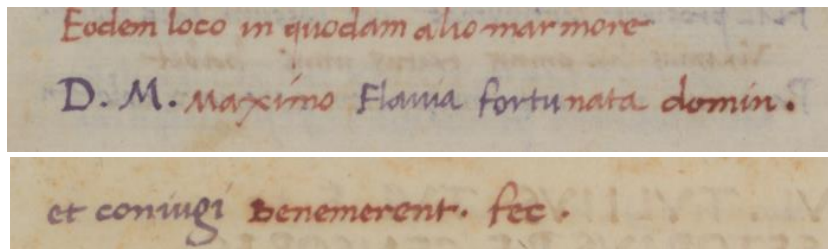 Eodem loco in quodam alio marmore
D. M. Maximo Flavia fortunata domin.
et coniugi benemerent. fec.